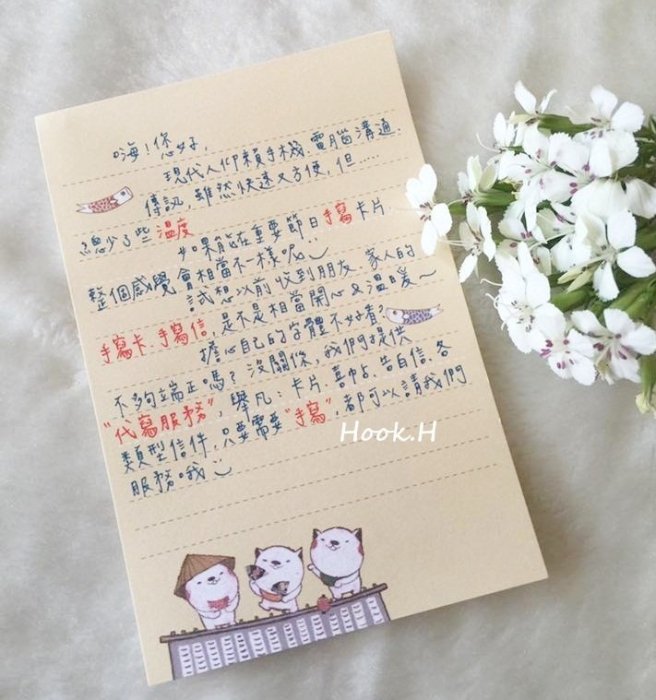 嗨！您好,
現代人仰賴手機.電腦溝通.
傳訊,雖然快速又方便,但……
總少了些溫度
如果能在重要節日手寫卡片.
整個感覺會相當不一樣呢
試想以前收到朋友.家人的
手寫卡.手寫信,是不是相當開心&溫暖～
擔心自己的字體不好看?
不夠端正嗎?沒關係,我們提供
"代寫服務",舉凡:卡片.喜帖.告白信.各
類型信件,只要需要"手寫",都可以請我們
服務哦
Hook.H